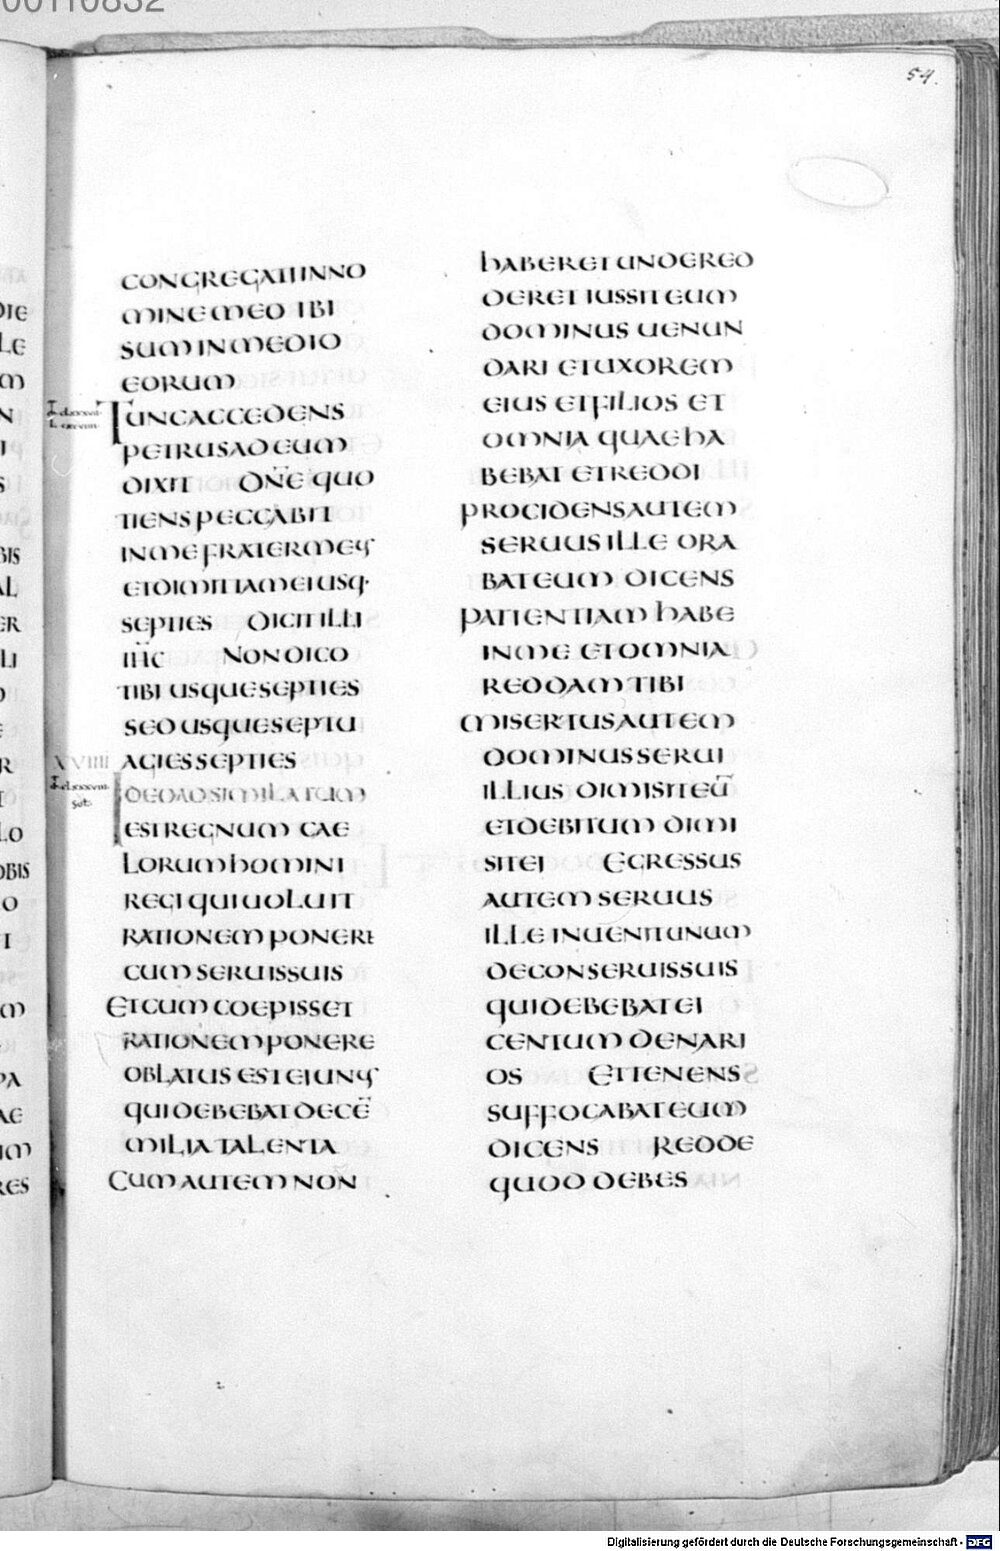 00110832
54.
CONGREGATI IN NO
MINE MEO IBI
SUM IN MEDIO
EORUM
TUNC ACCEDENS
PETRUS AD EUM
DIXIT DN̄E QUO
TIENS PECCABIT
IN ME FRATER MEUS
ET DIMITTAM EI USQ·
SEPTIES DICIT ILLI
IH̄C NON DICO
TIBI USQUE SEPTIES
SED USQUE SEPTU
XVIIII AGIES SEPTIES
IDEO ADSIMILATUM
EST REGNUM CAE
LORUM HOMINI
REGI QUI UOLUIT
RATIONEM PONERE
CUM SERUIS SUIS
ET CUM COEPISSET
RATIONEM PONERE
OBLATUS EST EI UNUS
QUI DEBEBAT DECĒ
MILIA TALENTA
CUM AUTEM NON
HABERET UNDE REO
DERET IUSSIT EUM
DOMINUS UENUN
DARI ET UXOREM
EIUS ET FILIOS ET
OMNIA QUAE HA
BEBAT ET REDDI
PROCIDENS AUTEM
SERUUS ILLE ORA
BAT EUM DICENS
PATIENTIAM HABE
IN ME ET OMNIA
REDDAM TIBI
MISERTUS AUTEM
DOMINUS SERUI
ILLIUS DIMISIT EŪ
ET DEBITUM DIMI
SIT EI EGRESSUS
AUTEM SERUUS
ILLE INUENIT UNUM
DE CONSERUIS SUIS
QUI DEBEBAT EI
CENTUM DENARI
OS ET TENENS
SUFFOCABAT EUM
DICENS REDDE
QUOD DEBES
Digitalisierung gefördert durch die Deutsche Forschungsgemeinschaft - DFG